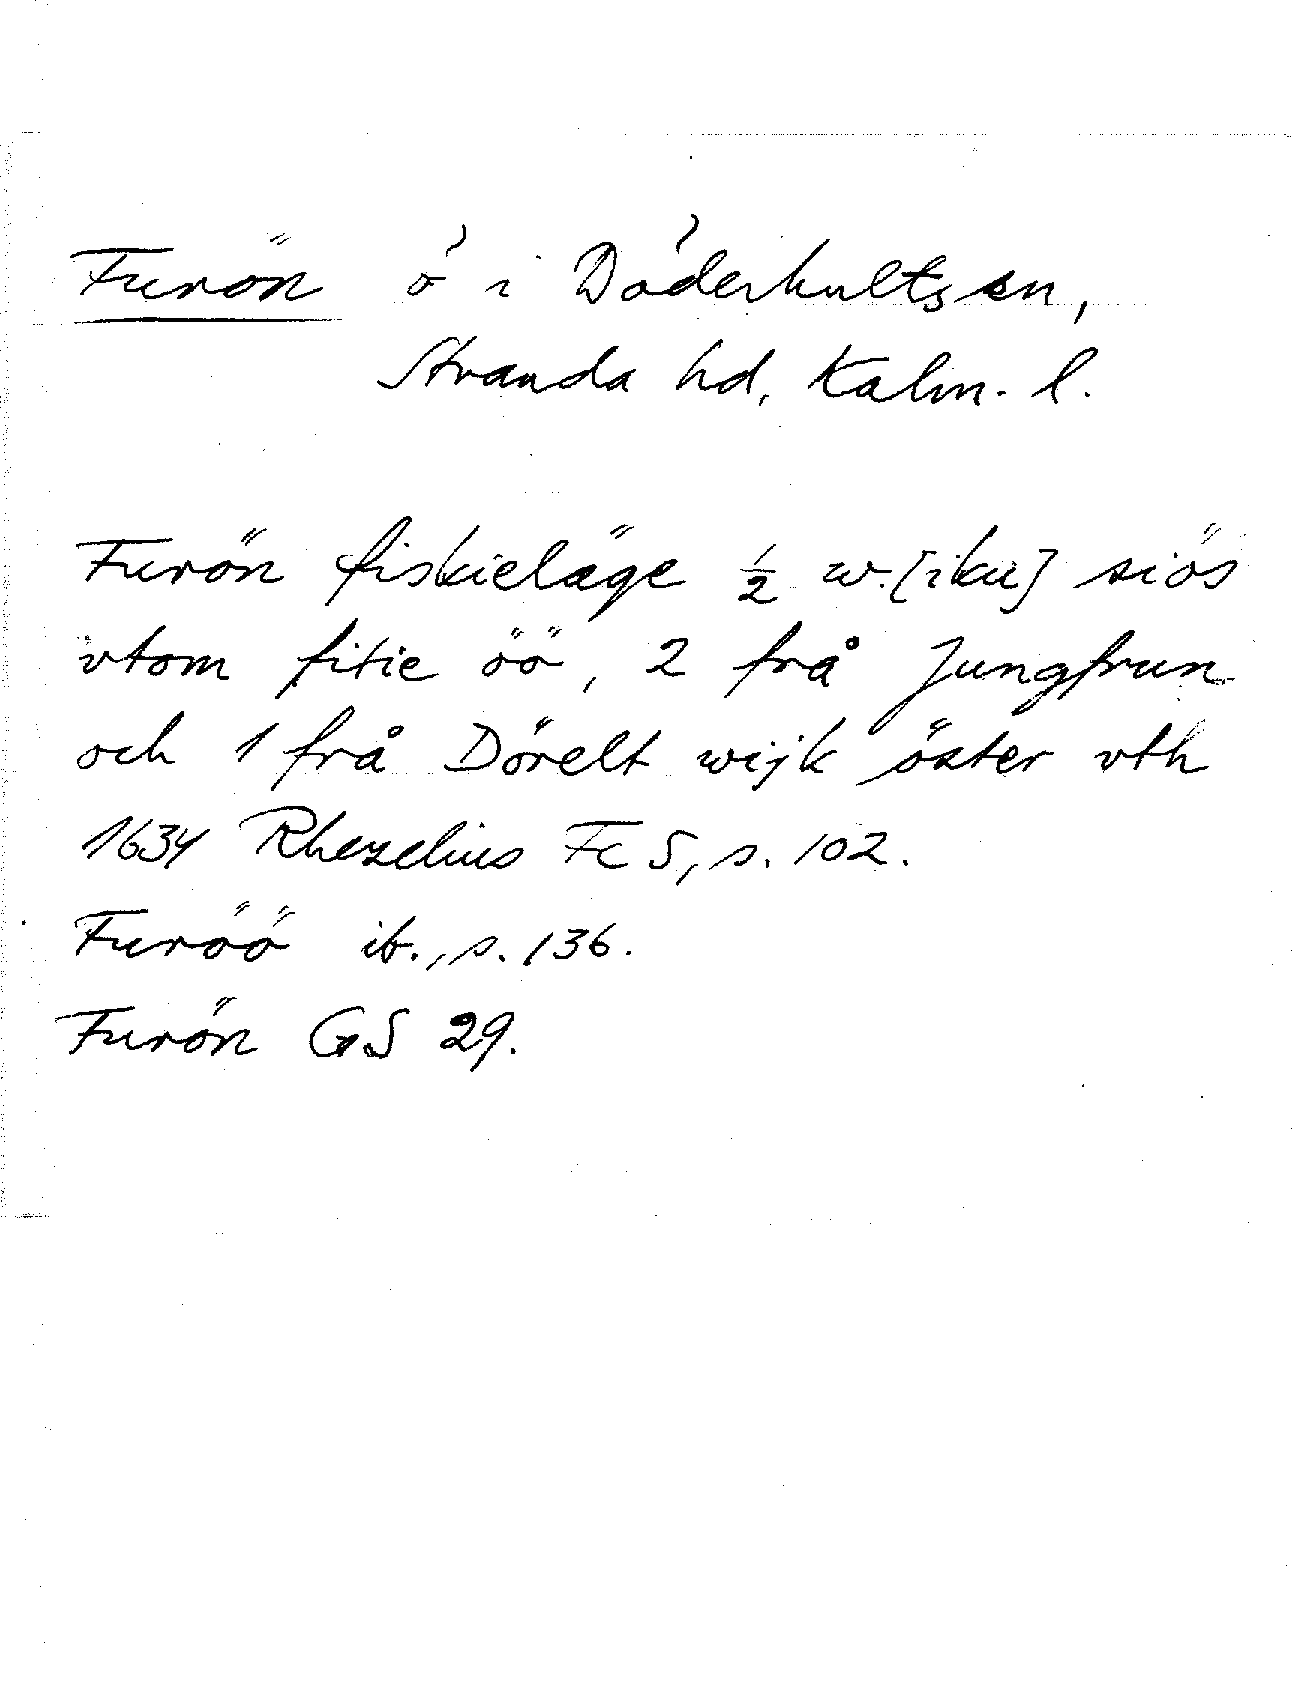 Furön ö i Döderhults sn,
Stranda hd, Kalm. l.
Furön fiskieläge ½ w.[iku] siös
vtom fitie öö, 2 frå Jungfrun
och 1 frå Dörelt wijk öster vth
1634 Rhezelius Fc 5, s. 102.
Furöö ib., s. 136.
Furön GS 29.